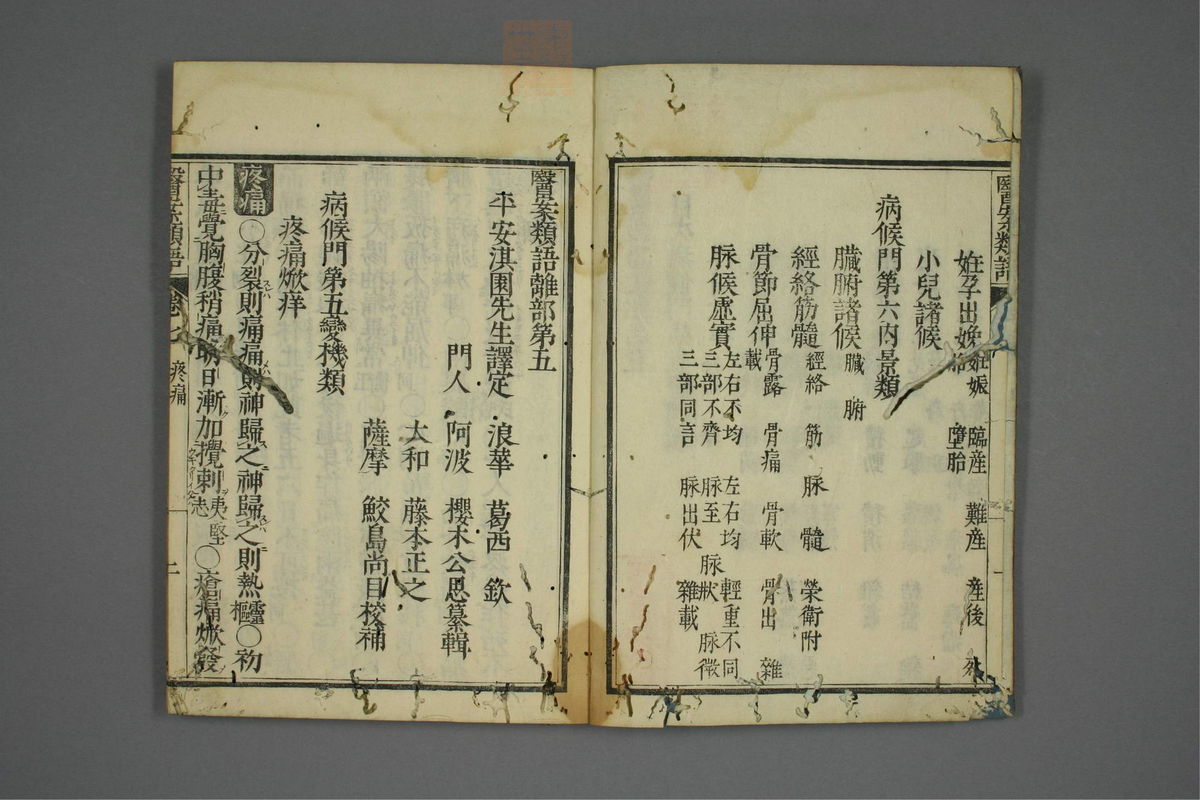 醫案類語
姙孕出娩 姙娠 臨産 難産 産後 外
胎 墮胎
小兒諸候
病候門第六内景類
臟腑諸候 臟 腑
經絡筋髓 經絡 筋 脉 髓 榮衛附
骨節屈伸 骨露 骨痛 骨軟 骨出 雜
載
脉候虚實 左右不均 左右均 輕重不同
三部不齊 脉至 脉狀 脉徴
三部同言 脉出伏 雜載
醫案類語雜部第五
平安淇園先生譯定 浪華 葛西 欽
門人 阿波 櫻木公恩纂輯
大和 藤本正之
薩摩 鮫島尚目校補
病候門第五變機類
疼痛焮痒
疼痛 ○分裂則痛痛則神歸之神歸之則熱靈樞○初
中毒覺胸腹稍痛明日漸加攪刺夷堅志○瘡痛焮發
醫案類語 卷七 疼痛 二